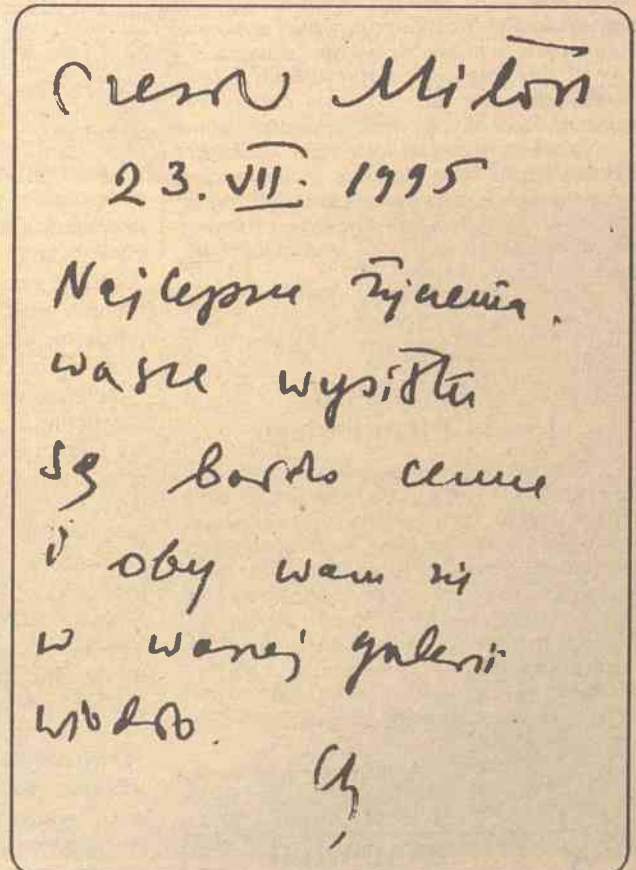 Czesław Miłosz
23. VII. 1995
Najlepsze życzenia.
wasze wysiłki
są bardzo cenne
i oby wam się
w waszej galerii
wiodło.